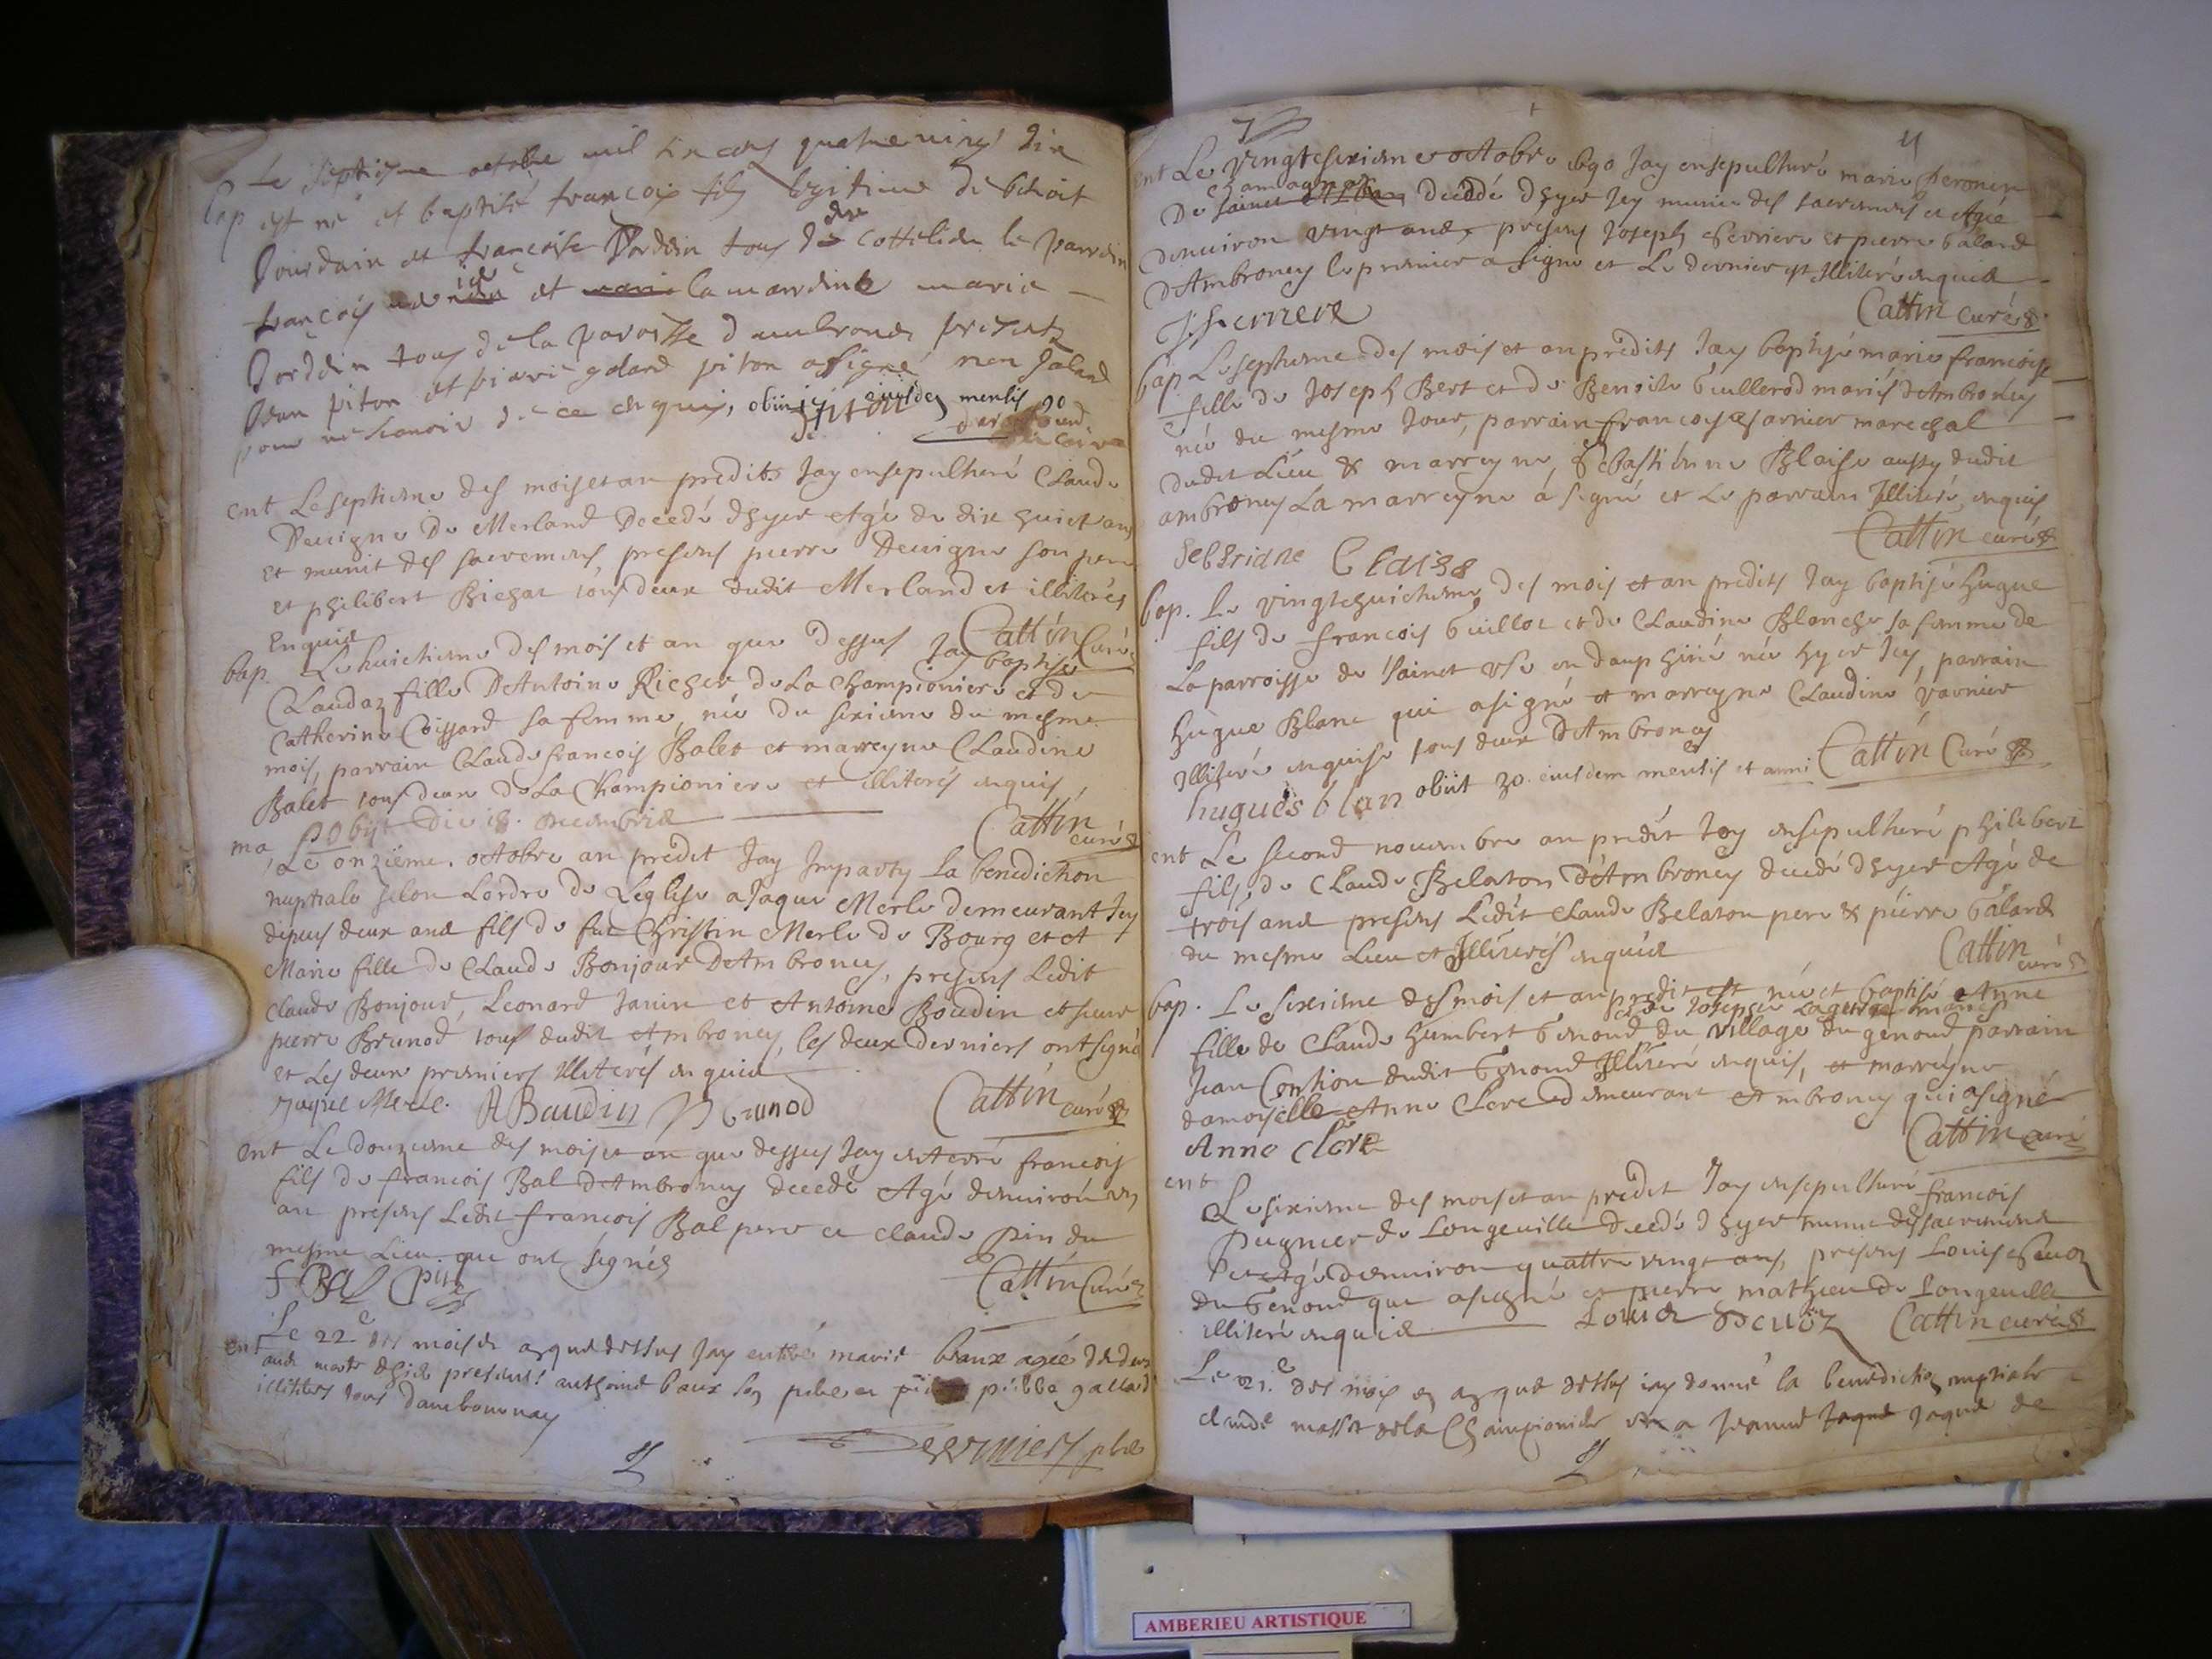 Le septiesme octobre mil six cens quatre vingt dix
bap est né et baptisé francois fils legitime de benoit
Jourdain et francoise tous de cottelieu le parrain
francois et la mardine marie
tous de la paroisse d'ambronay presents
Jean piton et pierre galard piton assigné non galard
pour ne scavoir de ce enquis, obiit eiusdem mensis
piton
ent Le septiesme des mois et an predits Jay ensepulturé Claude
Deuigne De Merland Decedé dhyer Agé de dix huict ans
et munit des sacremens, presens pierre Deuigne son pere
et philibert Bichat tous deux dudit Merland et illiterés
Enquis Cattin Curé
bap. Le huictiesme des mois et an que dessus Jay baptisé
Claudaz fille D'Antoine Richer de La Championiere et de
Catherine Coissard sa femme, née du sixiesme du mesme
mois, parrain Claude francois Balet et marreyne Claudine
Balet tous deux de La Championiere et illiterés enquis
Obijt Die 18. decembris Cattin curé
ma, Le onzième. octobre an predit Jay Imparty La benediction
nuptiale selon Lordre de Leglise a Jaque Merle demeurant Icy
depuis deux ans fils de fut Christin Merle de Bourg et et
Marie fille de Claude Bonjour D'Ambroney, presens Ledit
Claude Bonjour, Leonard Janin et Antoine Boudin et sieur
pierre Brunod, tous dudit Ambroney, les deux derniers ont signé
et Les deux premiers Illiterés enquis
Jaque Merle. A Baudin P Brunod Cattin curé
ent Le douziesme des mois et an que dessus Jay enterré francois
fils de francois Bal d'Ambroney decedé Agé denuiron un
an presens Ledit francois Bal pere et claude Pin du
mesme Lieu qui ont signés
f Bal C pin Cattin Curé
ent Le 22e des mois et an que dessus Jay enterré marie baux agée de deux
ans morte dhier presents anthoine baux son pere et pierre gallard
illiteres tous dambournay
pbre
ent Le Vingtsixieme octobre 1690 Jay ensepulturé marie peronin
De champagne decedé dhyer Icy munie des sacremens et Agée
denuiron Vingt ans, presens Joseph ferriere et pierre Galard
d'Ambroney le premier a signé et Le dernier est Illiteré enquis
J ferriere Cattin curé
bap. Le septiesme des mois et an predits Jay baptisé marie francoise
fille de Joseph Bert et de Benoite Guillerod mariés d'Ambroney
née du mesme Jour, parrain francois garnier marechal
dudit Lieu & marreyne Sebastienne Blaise aussy dudit
ambroney La marreyne a signé et Le parrain Illiteré, enquis
Cattin curé
bap. Le vingthuictieme des mois et an predits Jay baptisé hugue
fils de francois Guillot et de Claudine Blanche sa femme de
La parroisse de Sainct en dauphiné né hyer Icy, parrain
hugue Blanc qui a signé et marreyne Claudine Varnier
Illiterée enquise tous deux D'Ambroney
hugues blan obiit 30 eiusdem mensis et anni Cattin Curé
ent Le second nouembre an predit Jay ensepulturé philibert
fils de Claude Belaton d'Ambroney decedé dhyer Agé de
trois ans presens Ledit Claude Belaton pere & pierre Galard
du mesme Lieu et Illiterés enquis Cattin curé
bap. Le sixiesme des mois et an predit est née et baptisé Anne
fille de Claude humbert Genoud du village du genoud parrain
Jean dudit Genoud Illiteré enquis, et marreyne
damoiselle Anne Clere demeurant Ambroney qui a signé
Anne Clere Cattin curé
ent Le sixiesme des mois et an predit Jay ensepulturé francois
Pugnier de Longeuille decedé dhyer munie des sacremens
et Agé denuiron quattre vingt ans, presens Louis
du Genoud qui a signé et pierre mathieu de Longeuille
illiteré enquis Cattin curé
Le 21.e des mois et an que dessus iay donné la benediction nuptiale
claude de la Championiere a Jeanne Jaque de
AMBERIEU ARTISTIQUE